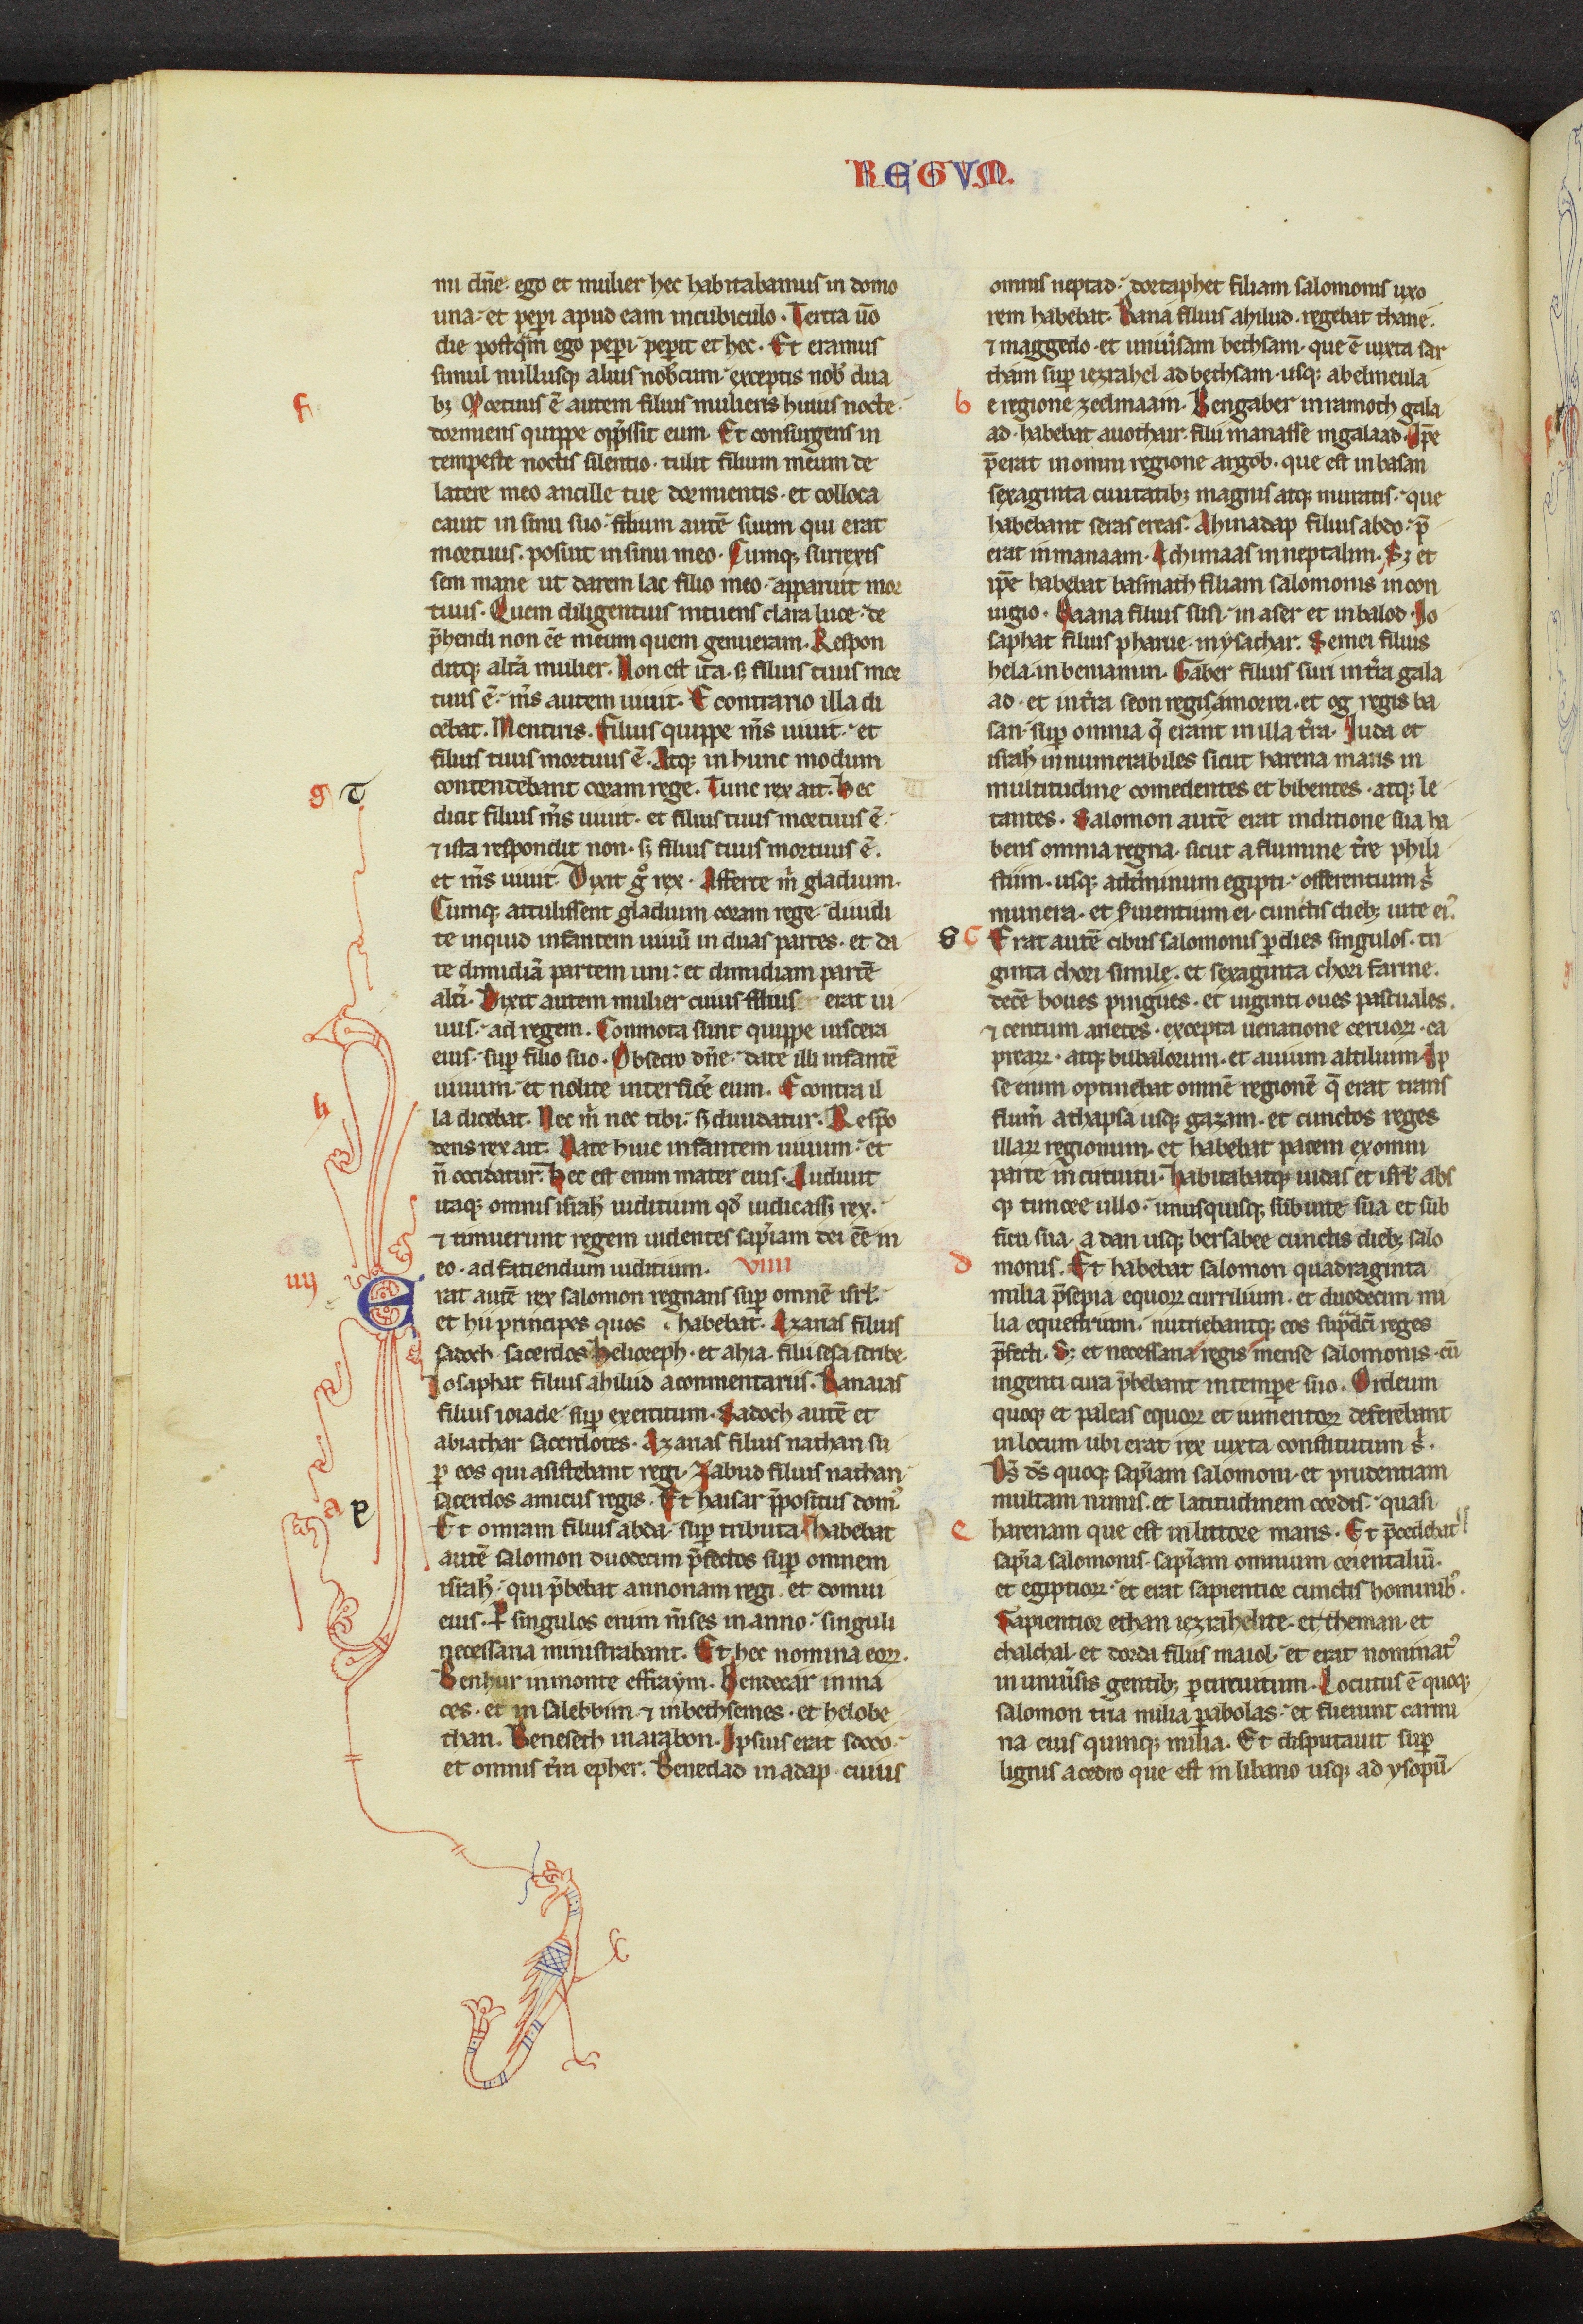 REGVM.
mi dn̄e· ego et mulier hec habitabamus in domo
una· et pepi apud eam in cubiculo· Tertia u̅o
die postq̄m ego pepi· pepit et hec· Et eramus
simul nullusq; alius nobcum· exceptis nob dua
f
bꝫ Mortuus ē autem filius mulieris huius nocte·
dormiens quippe opp̄ssit eum· Et consurgens in
tempeste noctis silentio· tulit filium meum de
latere meo ancille tue dormientis· et colloca
cauit in sinu suo· filium autē suum qui erat
mortuus· posuit in sinu meo· Cumq; surrexis
sem mane ut darem lac filio meo· apparuit mor
tuus· Quem diligentius intuens clara luce· de
p̄hendi non eē meum quem genueram· Respon
ditq; altā mulier· Non est ita· sꝫ filius tuus mor
tuus ē· m̄s autem uiuit· E contrario illa di
cebat· Mentiris· Filius quippe m̄s uiuit· et
filius tuus mortuus ē· Atq; in hunc modum
g d
contendebant coram rege· Tunc rex ait· hec
dicit filius m̄s uiuit· et filius tuus mortuus ē·
⁊ ista respondit non· sꝫ filius tuus mortuus ē·
et m̄s uiuit· Dixit gͦ rex· Afferte m̄ gladium·
Cumq; attulissent gladium coram rege· diuidi
te inquid infantem uiuū in duas partes· et da
te dimidiā partem uni· et dimidiam partē
altī· Dixit autem mulier cuius filius erat ui
uus· ad regem· Conmota sunt quippe uiscera
eius· sup filio suo· Obsecro dn̄e· date illi infantē
uiuum· et nolite interficē eum· E contra il
h
la dicebat· Nec m̄ nec tibi· sꝫ diuidatur· Respō
dens rex ait· Date huic infantem uiuum· et
n̄ occidatur· hec est enim mater eius· Audiuit
itaq; omnis israhł iuditium qd̄ iudicassꝫ rex·
⁊ timuerunt regem uidentes sap̄iam dei eē in
eo· ad fatiendum iuditium· VIIII
iiij
Erat autē rex salomon regnans sup omnē isrł·
et hii principes quos habebat· Azarias filius
sadoch sacerdos helioreph· et ahia· filii sesa scribe·
Iosaphat filius ahilud a conmentariis· Banaias
filius ioiade· sup exercitum· Sadoch autē et
abiathar sacerdotes· Azarias filius nathan su
ꝑ eos qui asistebant regi· Zabud filius nathan·
a e
sacerdos amicus regis· Et haisar p̄positus dom᾽
Et oniram filius abda· sup tributa· habebat
autē salomon duodecim p̄fectos sup omnem
israhł· qui p̄bebat annonam regi· et domui
eius· Ꝑ singulos enim m̄ses in anno· singuli
necessaria ministrabant· Et hec nomina eoꝝ·
Benhur in monte effraym· Bendecar in ma
ces· et in salebbim· ⁊ in bethsemes· et helobe
than· Beneseth in arabon· Ipsius erat socco·
et omnis t̄ra epher· Benedad in adap· cuius
omnis neptad· dortaphet filiam salomonis uxo
rem habebat· Bana filius ahilud· regebat thane·
⁊ maggedo· et uniūsam bethsam· que ē iuxta sar
tham sup iezrahel ad bethsam· usq; abelmeula
b
e regione zedmaam· Bengaber in ramoth gala
ad· habebat auothair· filii manasse in galaad· Ip̄e
p̄erat in omni regione argob· que est in basan
sexaginta ciuitatibꝫ magnis atq; muratis· que
habebant seras ereas· Ahinadap filius abdo· p̄
erat in manaam· Achimaas in neptalim· Sꝫ et
ip̄e habebat basmath filiam salomonis in con
iugio· Baana filius susi· in aser et in balod· Io
saphat filius pharue· in ysachar· Semei filius
hela· in beniamin· Gaber filius suri in t̄ra gala
ad· et in t̄ra seon regis amorrei· et og regis ba
san· sup omnia q̄ erant in illa t̄ra· Iuda et
israhł innumerabiles sicut harena maris in
multitudine comedentes et bibentes· atq; le
tantes· Salomon autē erat in ditione sua ha
bens omnia regna· sicut a flumine t̄re phili
stiim· usq; ad t̄minum egipti· offerentium s̄
munera· et s̄uientium ei· cunctis diebꝫ uite ei᾽
g c
Erat autē cibus salomonis ꝑ dies singulos· tri
ginta chori simile· et sexaginta chori farine·
decē boues pingues· et uiginti oues pascuales·
⁊ centum arietes· excepta uenatione ceruoꝝ· ca
prearꝝ· atq; bubalorum· et auium altilium· Ip
se enim optinebat omnē regionē q̄ erat trans
flum̄ a thapsa usq; gazam· et cunctos reges
illarꝝ regionum· et habebat pacem ex omni
parte in circuitu· habitabatq; iudas et isrł abs
q; timore ullo· unusquisq; sub uite sua et sub
ficu sua· a dan usq; bersabee cunctis diebꝫ salo
d
monis· Et habebat salomon quadraginta
milia p̄sepia equoꝝ currilium· et duodecim mi
lia equestrium· nutriebantq; eos sup̄dc̄i reges
p̄fecti· Sꝫ et necessaria regis mense salomonis· cū
ingenti cura p̄bebant in tempe suo· Ordeum
quoq; et paleas equoꝝ et iumentoꝝ deferebant
in locum ubi erat rex iuxta constitutum s̄·
Ds̄ ds̄ quoq; sap̄iam salomoni· et prudentiam
multam nimis· et latitudinem cordis· quasi
e
harenam que est in littore maris· Et p̄cedebat
sap̄ia salomonis· sap̄iam omnium orientaliū·
et egiptioꝝ· et erat sapientior cunctis hominib᾽·
Sapientior ethan iezrahelite· et theman· et
chalchal· et dorda filiis maiol· et erat nominat᾽
in uniūsis gentibꝫ ꝑ circuitum· Locutus ē quoq;
salomon tria milia ꝑabolas· et fuerunt carmi
na eius quinq; milia· Et disputauit sup
lignis a cedro que est in libano usq; ad ysopū